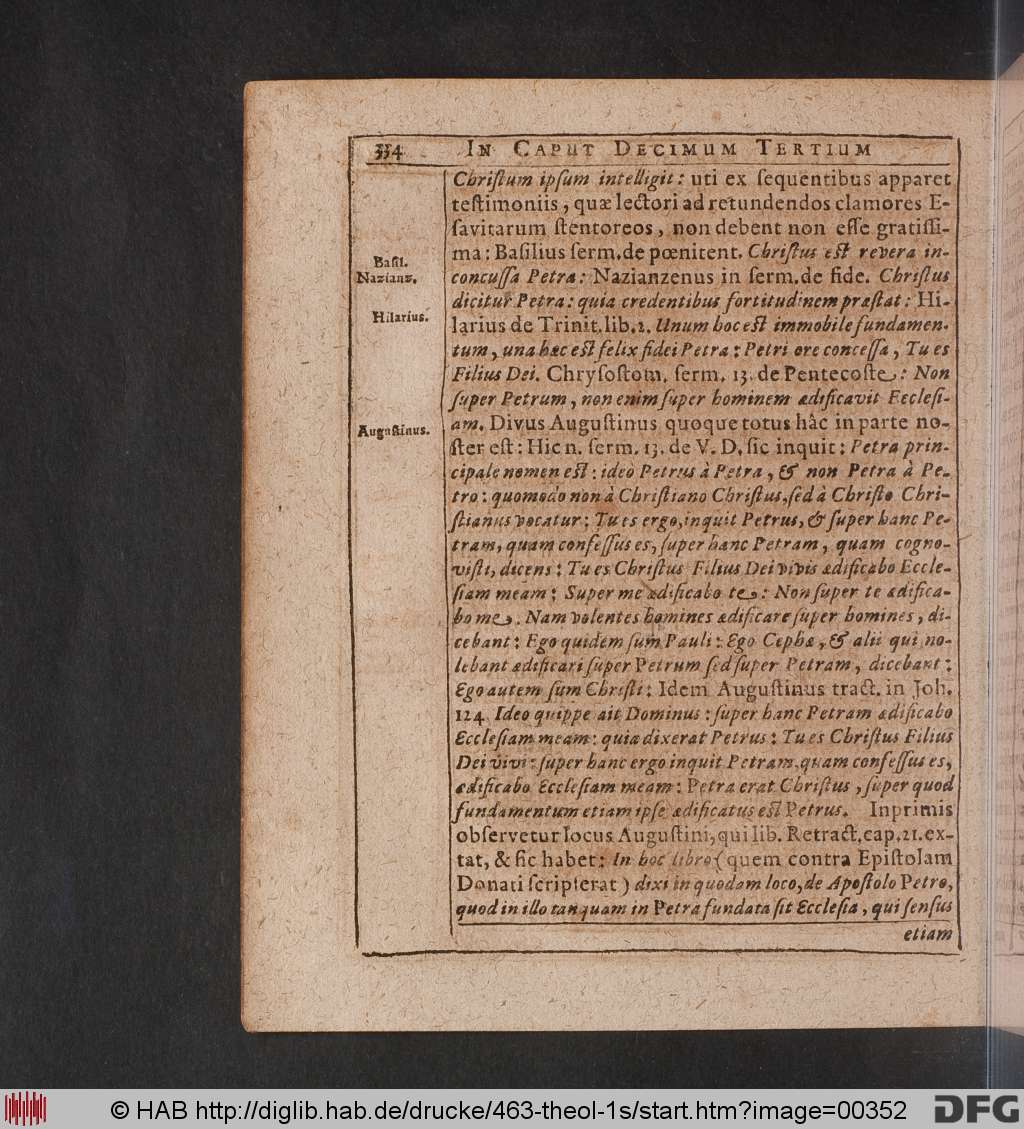 334 IN CAPUT DECIMUM TERTIUM
Chriſtum ipſum intelligit: uti ex ſequentibus apparet
teſtimoniis, quæ lectori ad retundendos clamores E-
ſavitarum ſtentoreos, non debent non eſſe gratiſſi-
ma: Baſilius ſerm. de pœnitent. Chriſtus est revera in-
Baſil.
concuſſa Petra: Nazianzenus in ſerm. de fide. Chriſtus
Nazianz.
dicitur Petra: quia credentibus fortitudinem præſtat: Hi-
larius de Trinit. lib. 2. Unum hoc est immobile fundamen-
Hilarius.
tum, una hæc est felix fidei Petra: Petri ore conceſſa, Tu es
Filius Dei. Chryſoſtom. ſerm. 13. de Pentecoſte: Non
ſuper Petrum, non enim ſuper hominem ædificavit Eccleſi-
am. Divus Auguſtinus quoque totus hâc in parte no-
Auguſtinus.
ſter eſt: Hic n. ſerm. 13. de V. D. ſic inquit: Petra prin-
cipale nomen est: ideò Petrus à Petra, & non Petra à Pe-
tro: quomodo non à Chriſtiano Chriſtus, ſed à Chriſto Chri-
ſtianus vocatur; Tu es ergo, inquit Petrus, & ſuper hanc Pe-
tram, quam confeſſus es, ſuper hanc Petram, quam cogno-
viſti, dicens: Tu es Chriſtus Filius Dei vivis ædificabo Eccle-
ſiam meam; Super me ædificabo te: Non ſuper te ædifica-
bo me. Nam volentes homines ædificare ſuper homines, di-
cebant: Ego quidem ſum Pauli: Ego Cephæ, & alii qui no-
lebant ædificari ſuper Petrum ſed ſuper Petram, dicebant:
Ego autem ſum Chriſti: Idem Auguſtinus tract. in Joh.
124. Ideo quippe ait Dominus: ſuper hanc Petram ædificabo
Eccleſiam meam: quia dixerat Petrus: Tu es Chriſtus Filius
Dei vivi: ſuper hanc ergo inquit Petram, quam confeſſus es,
ædificabo Eccleſiam meam: Petra erat Chriſtus, ſuper quod
fundamentum etiam ipſe ædificatus est Petrus. Inprimis
obſervetur locus Auguſtini, qui lib. Retract. cap. 21. ex-
tat, & ſic habet: In hoc libro (quem contra Epiſtolam
Donati ſcripſerat) dixi in quodam loco, de Apoſtolo Petro,
quod in illo tanquam in Petra fundata ſit Eccleſia, qui ſenſus
etiam
© HAB http://diglib.hab.de/drucke/463-theol-1s/start.htm?image=00352
DFG